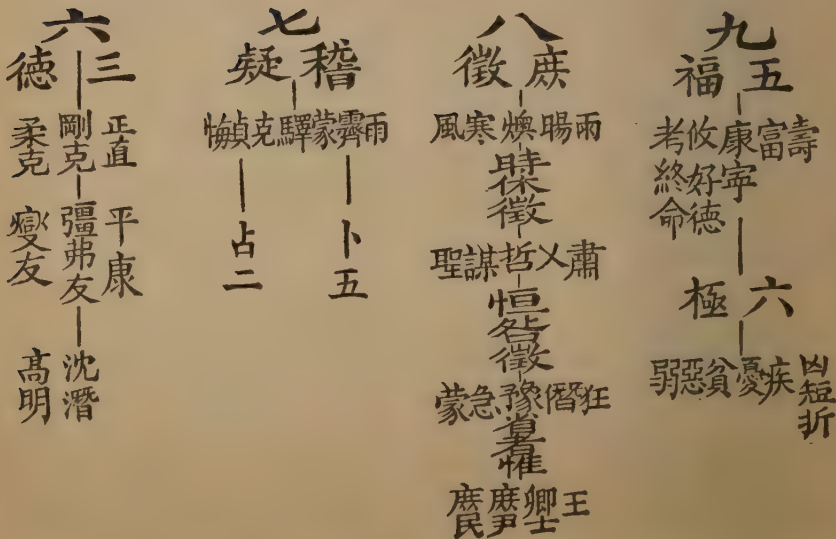 九
五福
壽 富 康寧 攸好徳 考終命
六極
凶短折 疾 憂 貧 惡 弱
八
庶徵
雨 暘 燠 寒 風
時休徵
肅 乂 哲 謀 聖
恒咎徵
狂 僭 豫 急 蒙
省惟
王 卿士 庶尹 庶民
七
稽疑
雨 霽 蒙 驛 克 貞 悔
卜五 占二
六
三徳
正直 剛克 柔克
平康 彊弗友 燮友
沈潛 高明